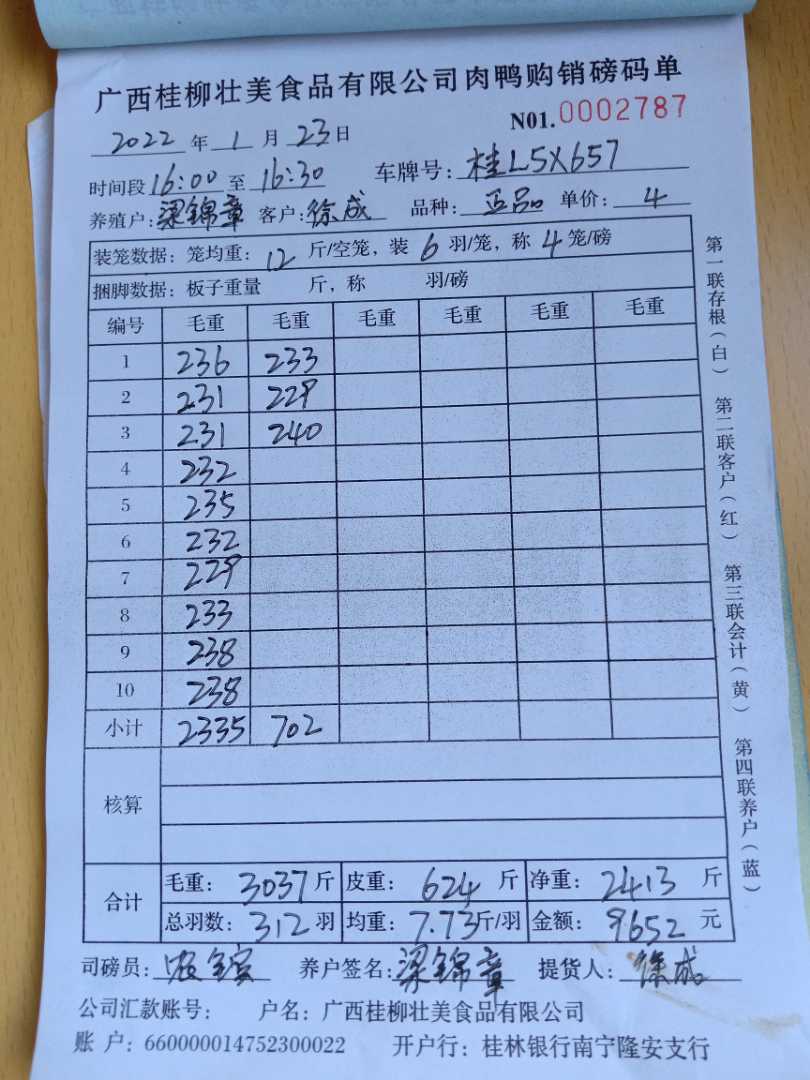 广西桂柳壮美食品有限公司肉鸭购销磅码单
2022 年 1 月 23 日 N01. 0002787
时间段 16:00 至 16:30 车牌号: 桂L5X657
养殖户: 梁锦章 客户: 徐成 品种: 正品 单价: 4
装笼数据: 笼均重: 12 斤/空笼, 装 6 羽/笼, 称 4 笼/磅
捆脚数据: 板子重量 斤, 称 羽/磅
编号 毛重 毛重 毛重 毛重 毛重 毛重
1 236 233
2 231 229
3 231 240
4 232
5 235
6 232
7 229
8 233
9 238
10 238
小计 2335 702
核算
合计 毛重: 3037 斤 皮重: 624 斤 净重: 2413 斤
总羽数: 312 羽 均重: 7.73 斤/羽 金额: 9652 元
司磅员: 养户签名: 梁锦章 提货人: 徐成
公司汇款账号: 户名: 广西桂柳壮美食品有限公司
账 户: 660000014752300022 开户行: 桂林银行南宁隆安支行
第一联存根(白) 第二联客户(红) 第三联会计(黄) 第四联养户(蓝)